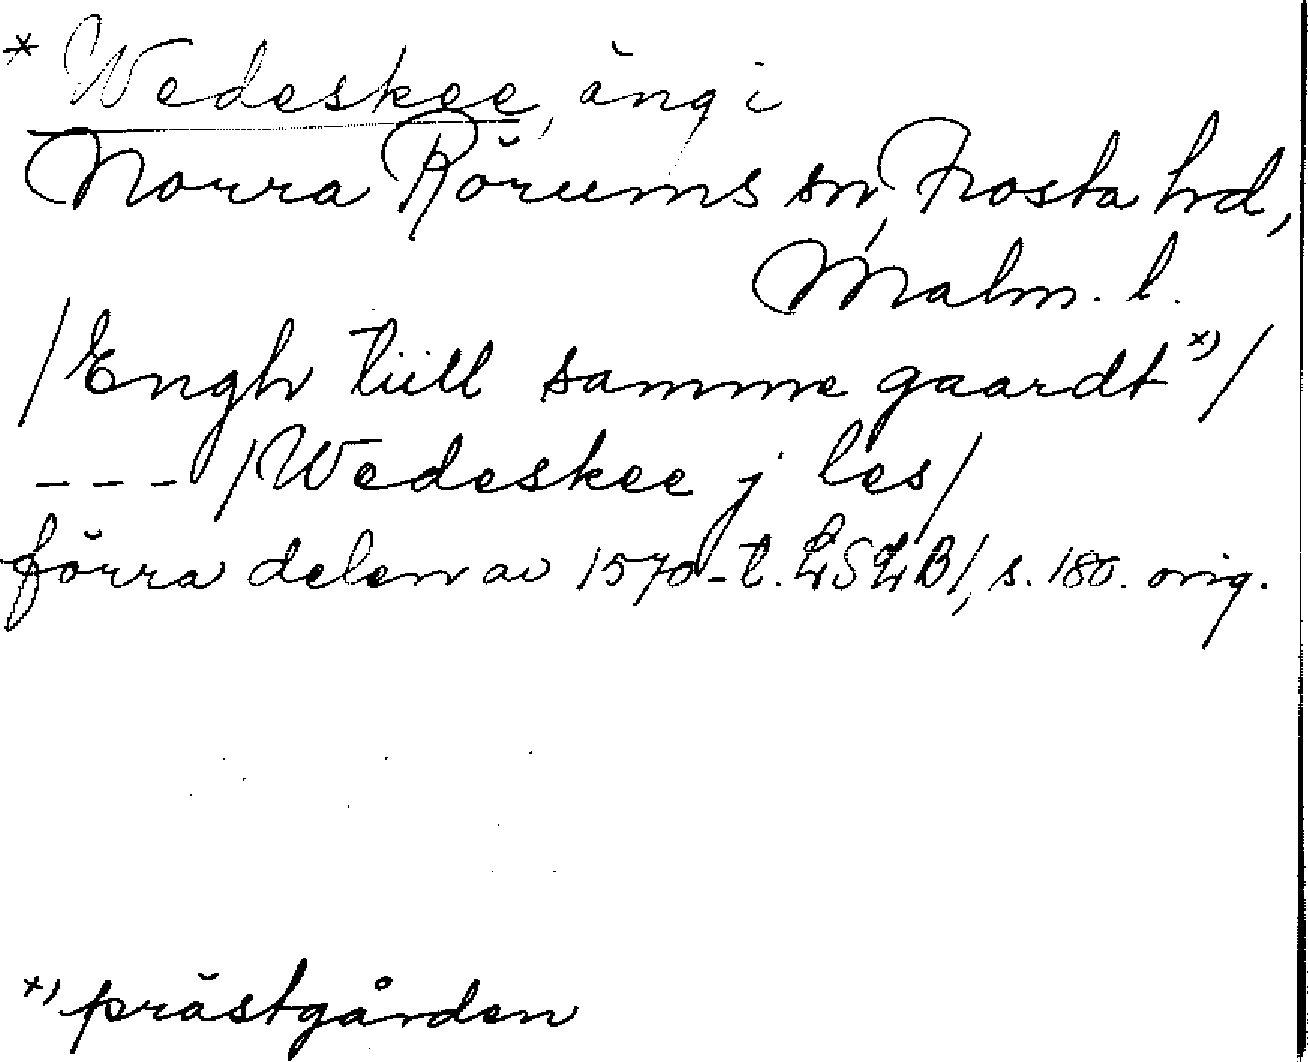 * Wedeskee, äng i
Norra Rörums sn, Frosta hd,
Malm. l.
/Engh tiill samme gaardt *)/
--- /Wedeskee j les/
förra delen av 1570-t. LSLB1, s. 180. orig.
*) prästgården